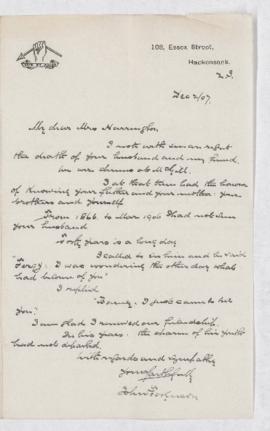 108, Essex Street,
Hackensack,
N.J.
Dec 2/07.
My dear Mrs Harrington,
I note with sincere regret
the death of your husband and my friend.
We were chums at McGill.
I at that time had the honor
of knowing your father and your mother: your
brothers and yourself
From 1866 to Mar 1906 I had not seen
your husband
Forty years is a long day
I called to see him and he said
"Fergy. I was wondering the other day what
had become of you"
I replied
"Barney. I just came to see
you"
I am glad I renewed our friendship.
In his years the charm of his youth
had not departed.
With regards and sympathy
Yours faithfully
John Ferguson